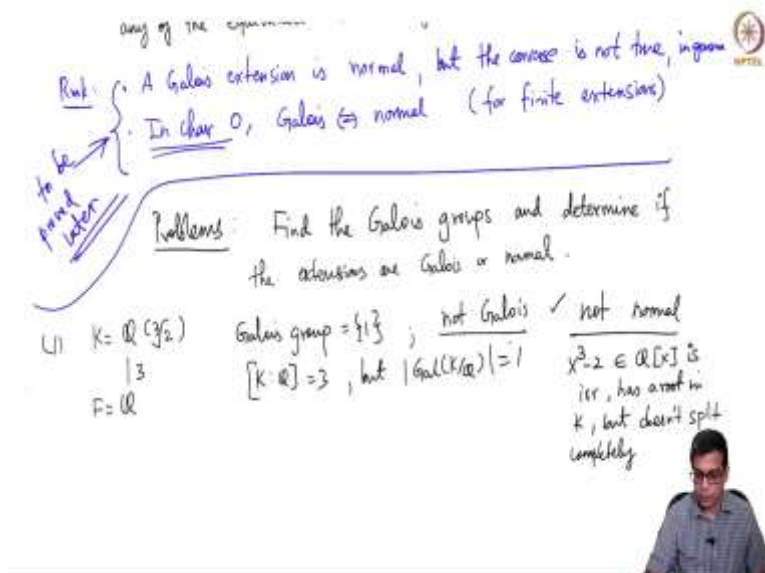 any of the
Rmk: • A Galois extension is normal, but the converse is not true, in general
• In char 0, Galois ⇔ normal (for finite extensions)
to be proved later
Problems: Find the Galois groups and determine if
the extensions are Galois or normal.
(1) K = Q(∛2) Galois group = {1} ; not Galois ✓ not normal
|3 [K:Q] = 3, but |Gal(K/Q)| = 1 x³-2 ∈ Q[x] is
F = Q irr, has a root in
K, but doesn't split
completely
NPTEL